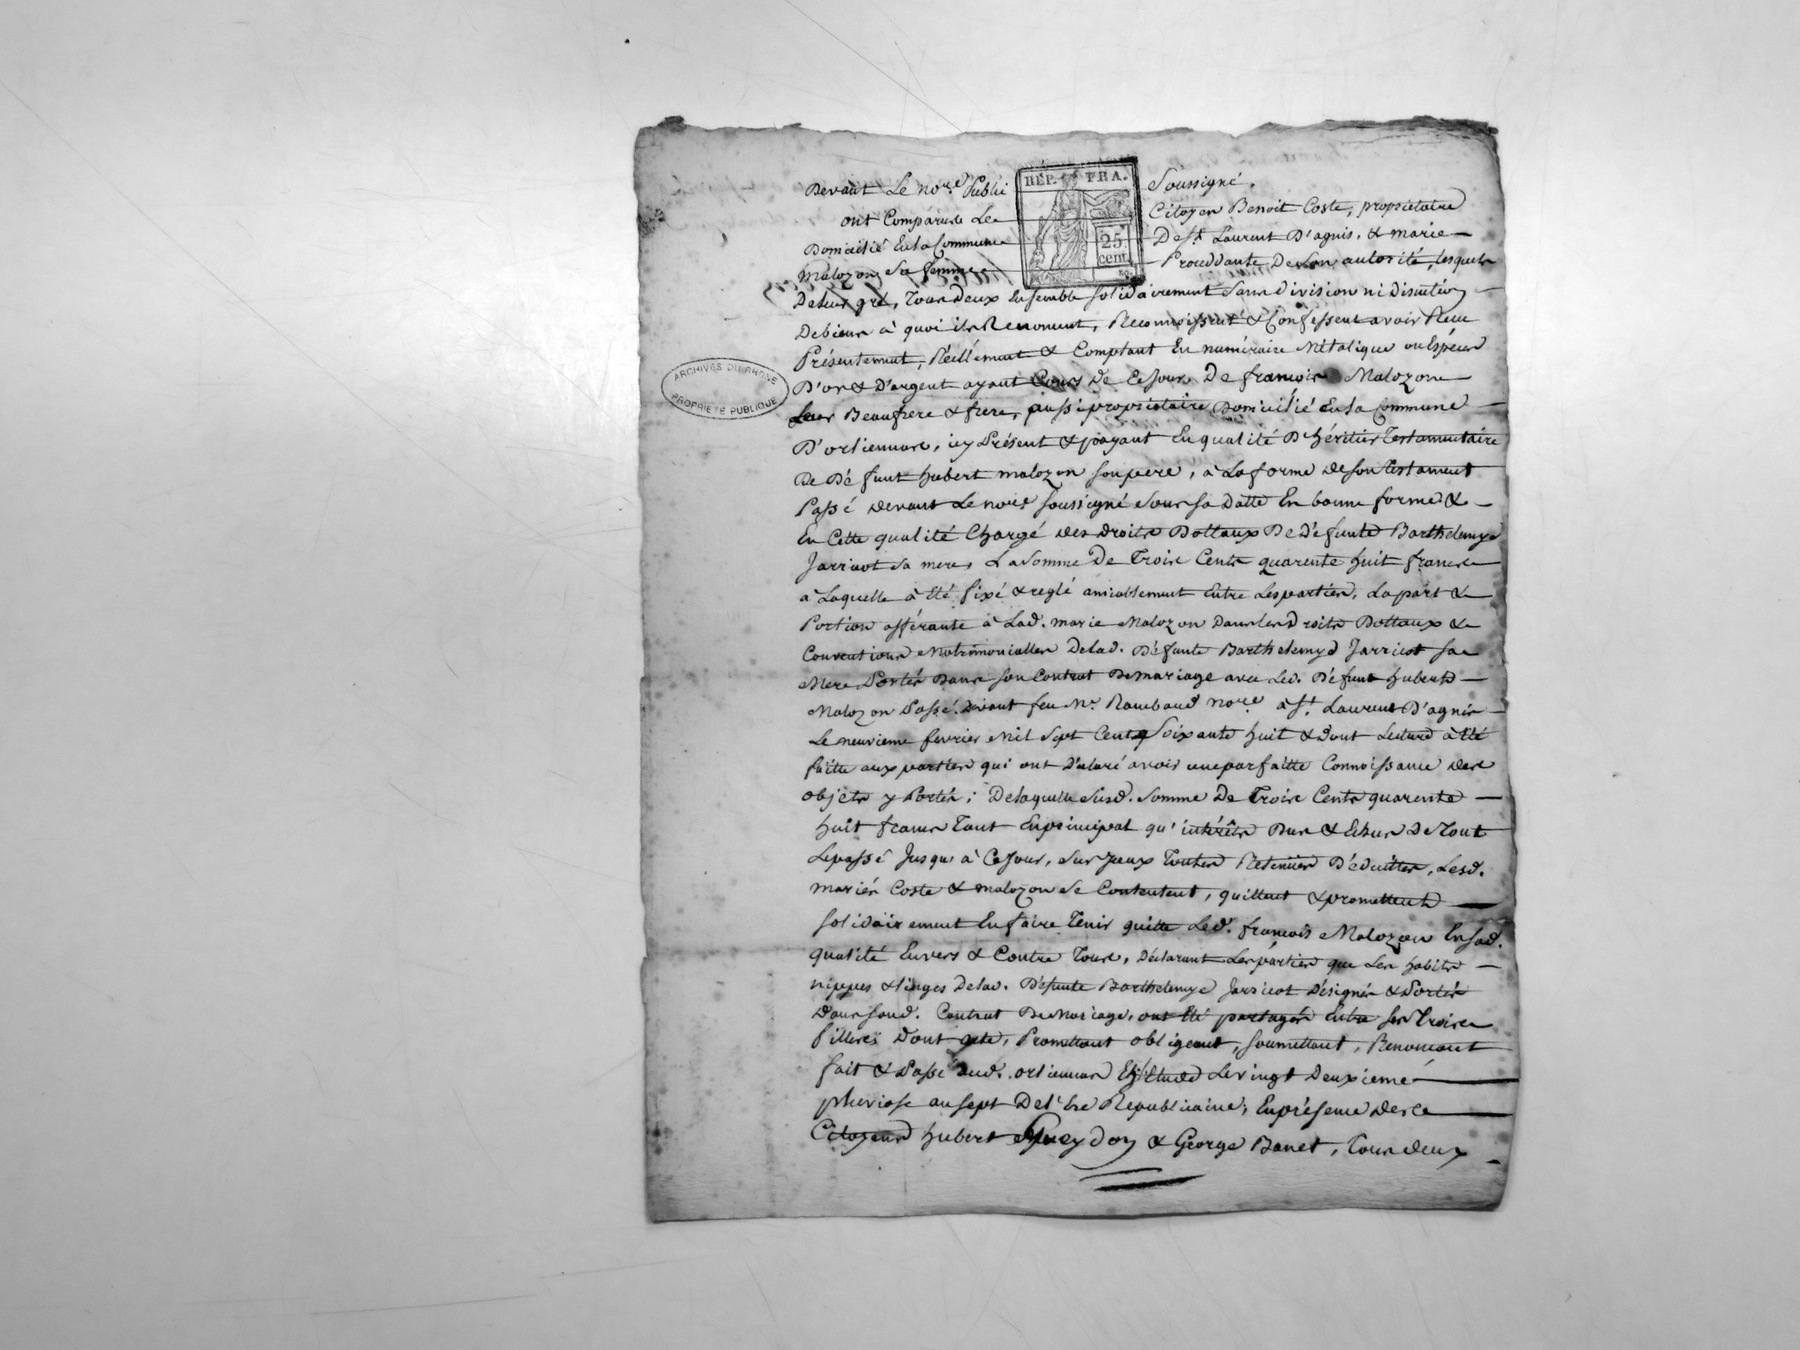 RÉP. FRA.
25
cent.
ARCHIVES DU RHONE
PROPRIETE PUBLIQUE
Devant Le no.re Public Soussigné,
ont Comparude Le Citoyen Benoit Coste, propriétaire
Domicilié En la Commune De S.t Laurent D'agnis, & marie
Malozon sa femme Proceddante De son autorité, lesquels
De leur gré, Tous deux Ensemble solidairement Sans division ni Discution
De biens à quoi ils Renoncent, Reconnoissent & Confessent avoir Reçu
Présentement, Réellement & Comptant En numéraire Métalique ou Espèces
D'or & D'argent ayant Cours de Ce Jour De françois Malozon
Leur Beaufrere & frere, aussi propriétaire Domicilié En la Commune
D'orliennas, icy Présent & payant En qualité D'héritier Testamentaire
De Défunt hubert malozon son pere, à La forme de son testament
Passé devant Le no.re soussigné sous sa Datte En bonne forme &
En Cette qualité Chargé des Droits Dottaux De Défunte Barthelemye
Jarricot sa mere, La Somme De Trois Cents quarente huit francs
à Laquelle à été fixé & reglé amicablement Entre Les parties, La part &
Portion afférante à Lad. marie Malozon Dans les Droits Dottaux &
Conventions Matrimonialles De lad. Défunte Barthelemye Jarricot sa
Mere Portés Dans son Contrat De mariage avec Led. Défunt hubert
Malozon Passé Devant feu M.r Rambaud no.re à S.t Laurent D'agnis
Le neuvieme fevrier Mil Sept Cents Soixante huit & dont Lecture à été
faitte aux parties qui ont Déclaré avoir une parfaitte Connoissance des
objets y Portés ; De laquelle Susd. Somme De Trois Cents quarente
huit francs Tant En principal qu'intérêts Dus & Echus De Tout
Le passé Jusqu'à Ce Jour, sur Iceux Toutes Retenües Déduittes, Lesd.
mariés Coste & malozon se Contentent, quittent & promettent
solidairement En faire Tenir quitte Led. françois Malozon En sad.
qualité Envers & Contre Tous, Déclarant Les parties que Les habits
nippes & linges De lad. Défunte Barthelemye Jarricot Désignés & Portés
Dans sond. Contrat De Mariage, ont été partagés Entre ses trois
filles Dont acte, Promettant obligeant, soumettant, Renoncant
fait & Passé aud. orlienas Etude Le vingt Deuxieme
pluviose an sept De l'Ere Republicaine, En présence des
Citoyens hubert Gueydon & George Banet, Tous deux